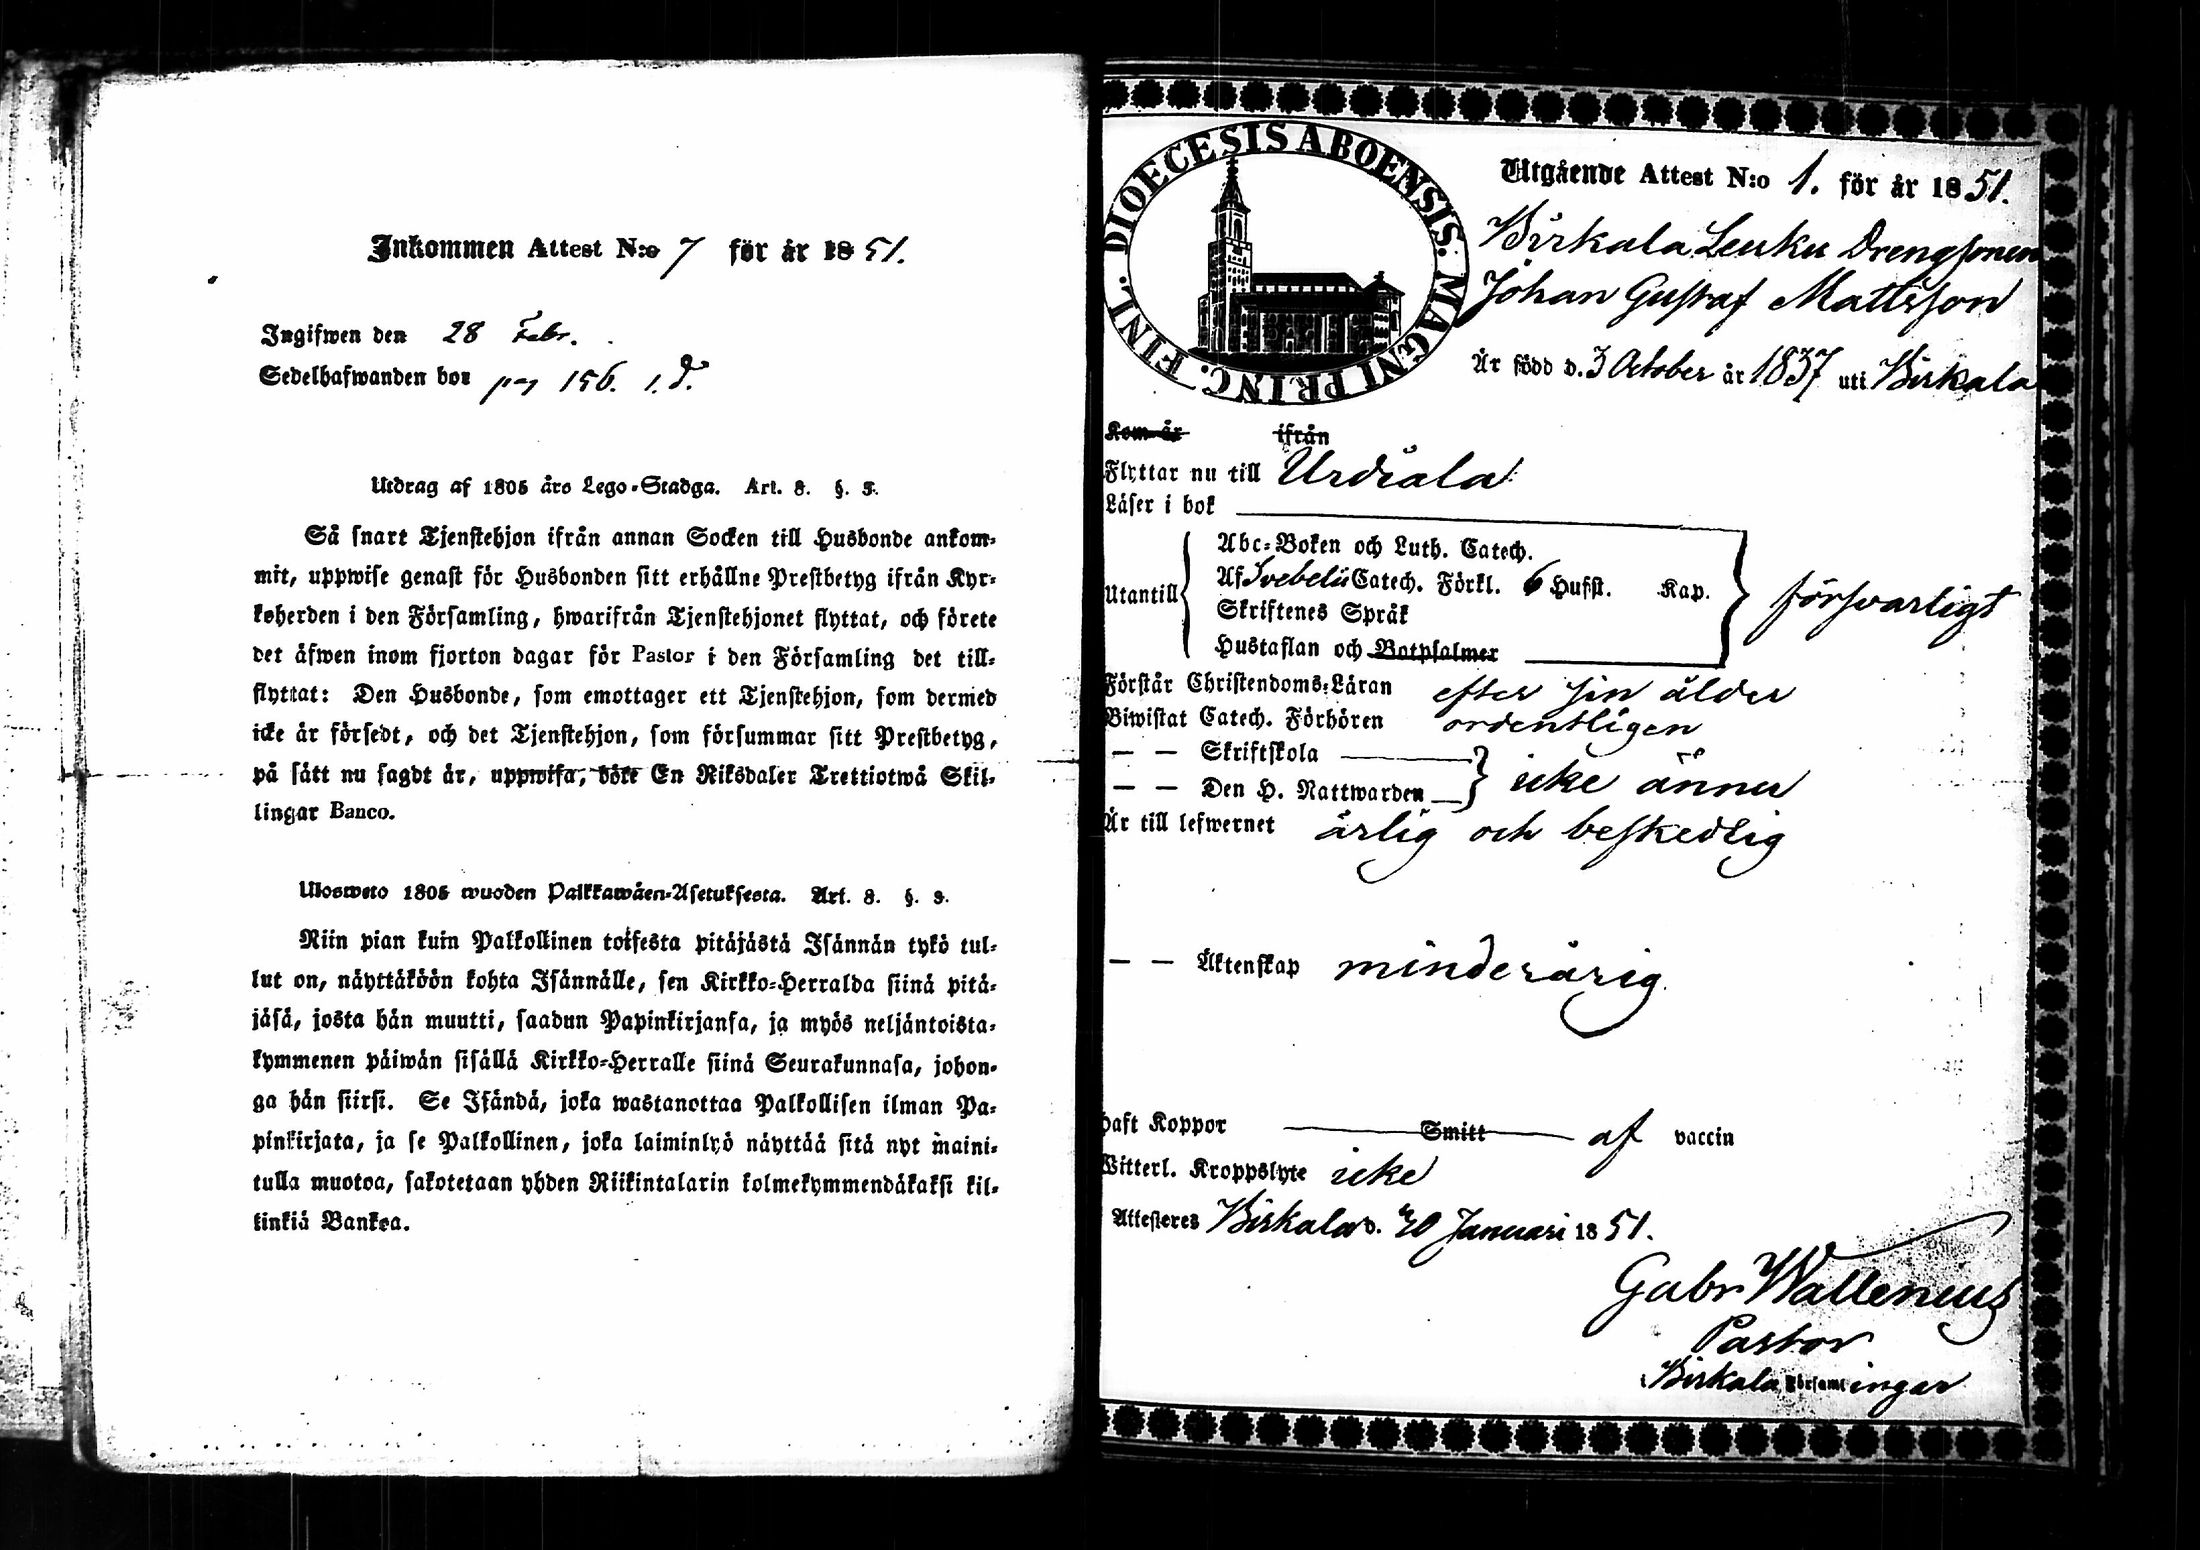 Inkommen Attest N:o 7 för år 1851.
Ingifwen den 28 Febr.
Sedelhafwanden bor pag 156. 1. d.
Utdrag af 1805 års Lego-Stadga. Art. 8. §. 3.
Så snart Tjenstehjon ifrån annan Socken till Husbonde ankom-
mit, uppwise genast för Husbonden sitt erhållne Prestbetyg ifrån Kyr-
koherden i den Församling, hwarifrån Tjenstehjonet flyttat, och förete
det äfwen inom fjorton dagar för Pastor i den Församling det till-
flyttat: Den Husbonde, som emottager ett Tjenstehjon, som dermed
icke är försedt, och det Tjenstehjon, som försummar sitt Prestbetyg,
på sätt nu sagdt är, uppwisa, böte En Riksdaler Trettiotwå Skil-
lingar Banco.
Ulosweto 1805 wuoden Palkkawäen-Asetuksesta. Art. 8. §. 3.
Niin pian kuin Palkollinen toisesta pitäjästä Isännän tykö tul-
lut on, näyttäköön kohta Isännälle, sen Kirkko-Herralda siinä pitä-
jäsä, josta hän muutti, saadun Papinkirjansa, ja myös neljäntoista-
kymmenen päiwän sisällä Kirkko-Herralle siinä Seurakunnasa, johon-
ga hän siirsi. Se Isändä, joka wastanottaa Palkollisen ilman Pa-
pinkirjata, ja se Palkollinen, joka laiminlyö näyttää sitä nyt maini-
tulla muotoa, sakotetaan yhden Riikintalarin kolmekymmendäkaksi kil-
linkiä Bankoa.
DIOECESIS ABOENSIS. MAGNI PRINC. FINL.
Utgående Attest N:o 1. för år 1851.
Birkala Leuku Drengsonen
Johan Gustaf Mattsson
Är född d. 3 October år 1837 uti Birkala
Kom år ifrån
Flyttar nu till Urdiala
Läser i bok
Utantill
Abc-Boken och Luth. Catech.
Af Svebelii Catech. Förkl. 6 Hufst. Kap.
Skriftenes Språk
Hustaflan och Botpsalmer
försvarligt
Förstår Christendoms-Läran efter sin ålder
Biwistat Catech. Förhören ordentligen
— — Skriftskola
— — Den H. Nattwarden icke ännu
Är till lefwernet ärlig och beskedlig
— — Äktenskap minderårig
Haft Koppor Smitt af vaccin
Witterl. Kroppslyte icke
Attesteres Birkala d. 20 Januari 1851.
Gabr Wallenius
Pastor
i Birkala Församlingar